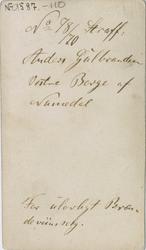 NF.1897.-110
No 78/70 Straff.
Anders Gulbrandsen
Østne Berge af
Numedal
For ulovligt Bræn-
deviinssalg.